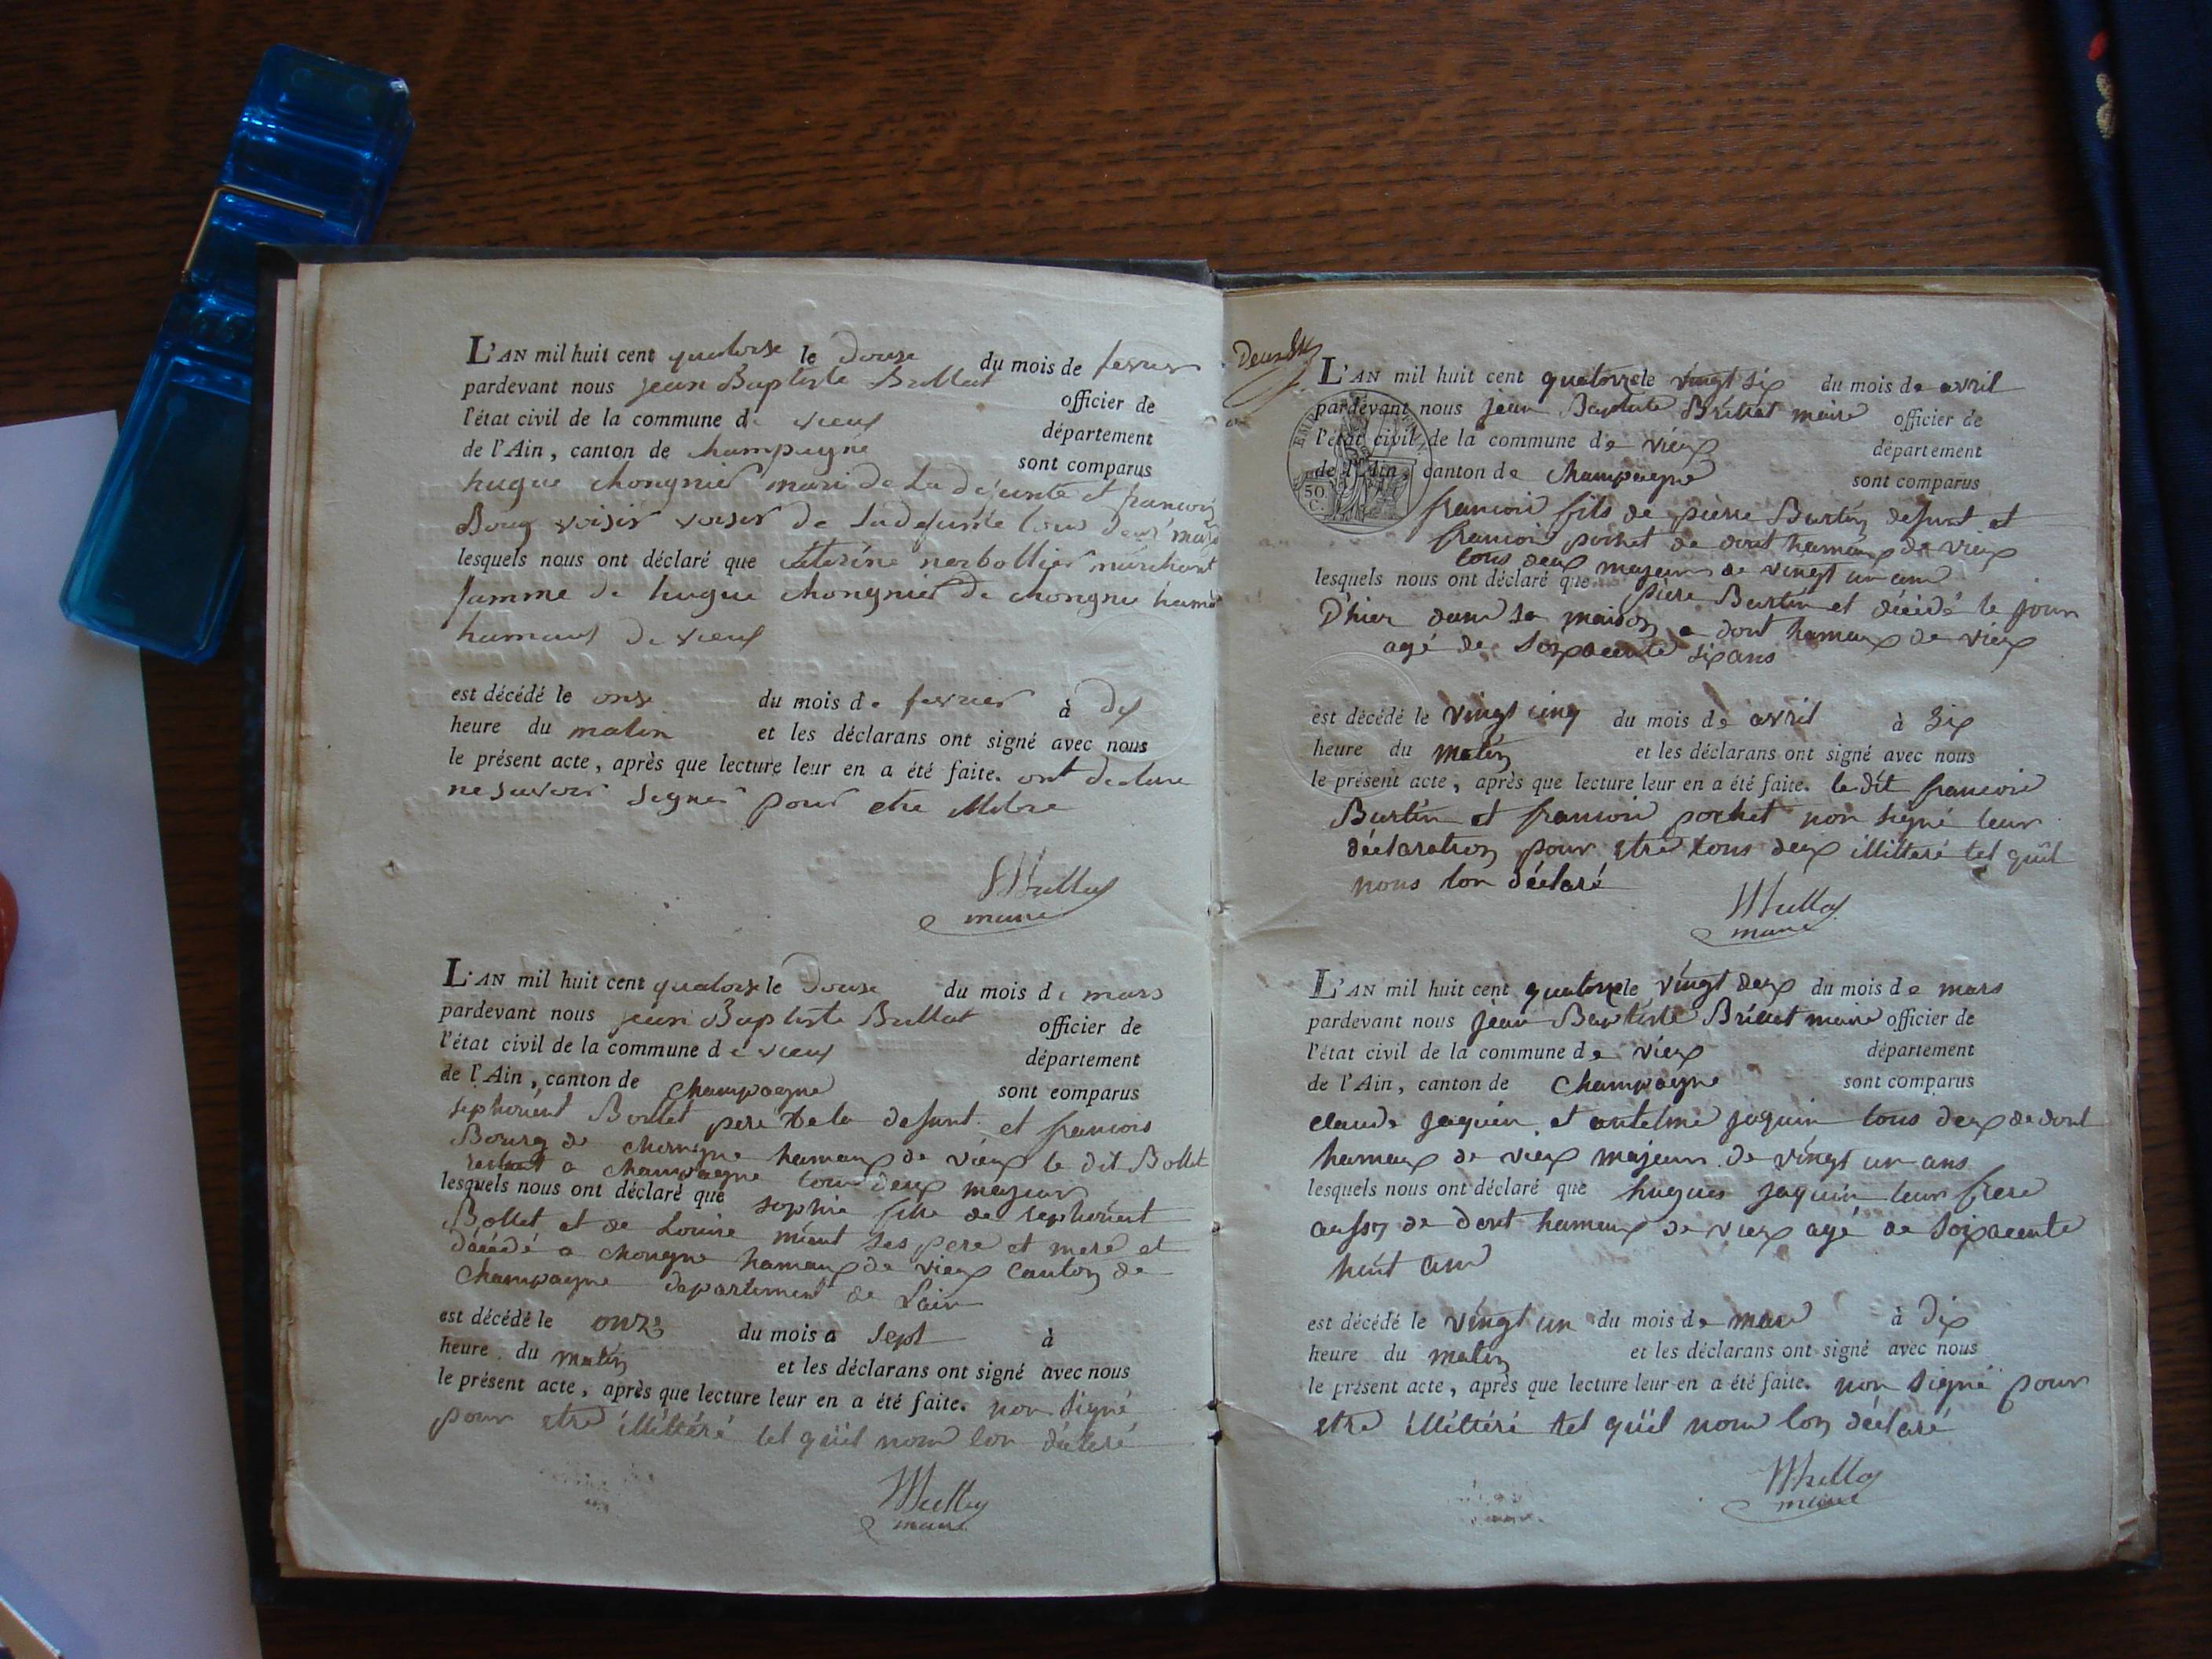 L'AN mil huit cent quatorse le douse du mois de fevrier
pardevant nous jean Baptiste Brillat officier de
l'état civil de la commune de vieux département
de l'Ain, canton de champagne sont comparus
hugue chongnier mari de La defunte et francois
Bourg voisin de La defunte tous deux
lesquels nous ont déclaré que
famme de hugue chongnier de chongne
hamaux de vieux
est décédé le onse du mois de fevrier à dix
heure du matin et les déclarans ont signé avec nous
le présent acte, après que lecture leur en a été faite. ont declare
ne savoir signer pour etre
Brillat
maire
L'AN mil huit cent quatorse le douse du mois de mars
pardevant nous jean Baptiste Brillat officier de
l'état civil de la commune de vieux département
de l'Ain, canton de champagne sont comparus
Bollet pere de la defunt et francois
Bourg de chongne hamaux de vieux le dit Bollet
restant a champagne tous deux majeur
lesquels nous ont déclaré que sophie fille de
Bollet et de Louise ses pere et mere et
décédé a chongne hamaux de vieux canton de
champagne departement de Lain
est décédé le onze du mois a sept à
heure du matin et les déclarans ont signé avec nous
le présent acte, après que lecture leur en a été faite. non signé
pour etre illittéré tel quil nous lon déclaré
Brillat
maire
L'AN mil huit cent quatorze le vingt six du mois de avril
pardevant nous jean Baptiste Brillat maire officier de
l'état civil de la commune de vieux département
de l'Ain, canton de champagne sont comparus
50
C.
francois fils de pierre Burtin defunt et
francois pochet de dont hamaux de vieux
tous deux majeurs de vingt un ans
lesquels nous ont déclaré que piere Burtin et décédé le jour
D'hier dans sa maison a dont hamaux de vieux
agé de soixacente six ans
est décédé le vingt cinq du mois de avril à six
heure du matin et les déclarans ont signé avec nous
le présent acte, après que lecture leur en a été faite. le dit francois
Burtin et francois pochet non signé leur
déclaration pour etre tous deux illitteré tel quil
nous lon déclaré
Brillat
maire
L'AN mil huit cent quatorze le vingt deux du mois de mars
pardevant nous jean Baptiste Brillat maire officier de
l'état civil de la commune de vieux département
de l'Ain, canton de champagne sont comparus
claude jaquin et antelme jaquin tous deux de dont
hamaux de vieux majeur de vingt un ans
lesquels nous ont déclaré que hugues jaquin leur frere
aussy de dont hamaux de vieux agé de soixacente
huit ans
est décédé le vingt un du mois de mars à dix
heure du matin et les déclarans ont signé avec nous
le présent acte, après que lecture leur en a été faite. non signé pour
etre illittéré tel quil nous lon déclaré
Brillat
maire